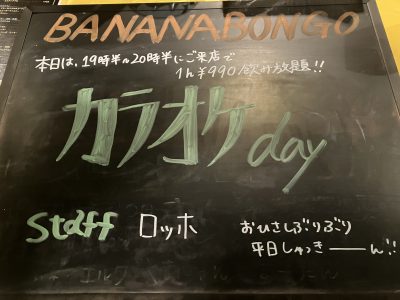 BANANABONGO
本日は、19時半〜20時半にご来店で
1h ¥990 飲み放題!!
カラオケ day
Staff ロッホ
おひさしぶりぶり
平日しゃっきーーん!!